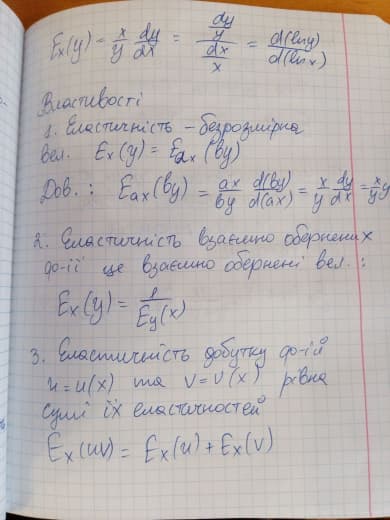 Eₓ(y) = x/y dy/dx = (dy/y)/(dx/x) = d(ln y)/d(ln x)
Властивості
1. Еластичність – безрозмірна
вел. Eₓ(y) = Eₐₓ(by)
Дов.: Eₐₓ(by) = ax/by d(by)/d(ax) = x/y dy/dx = x/y y
2. Еластичність взаємно обернених
ф-ії це взаємно обернені вел.:
Eₓ(y) = 1/E_y(x)
3. Еластичність добутку ф-ій
u = u(x) та v = v(x) рівна
сумі їх еластичностей
Eₓ(uv) = Eₓ(u) + Eₓ(v)